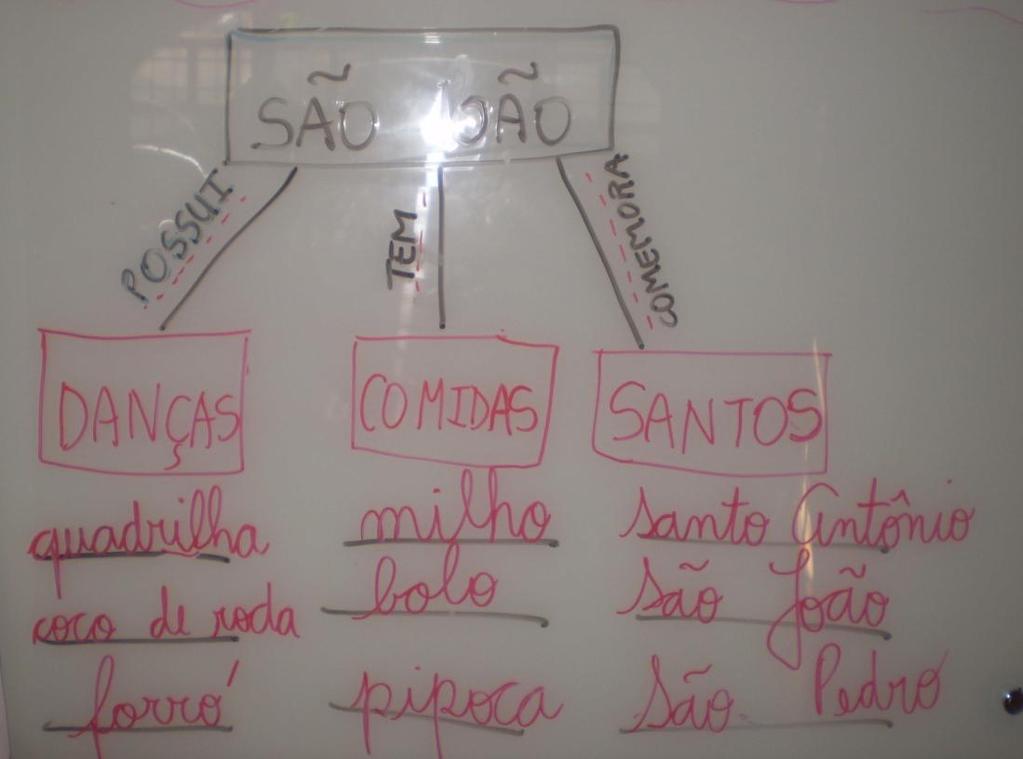 SÃO JOÃO
POSSUI
TEM
COMEMORA
DANÇAS
quadrilha
coco de roda
forró
COMIDAS
milho
bolo
pipoca
SANTOS
santo Antônio
são João
são Pedro